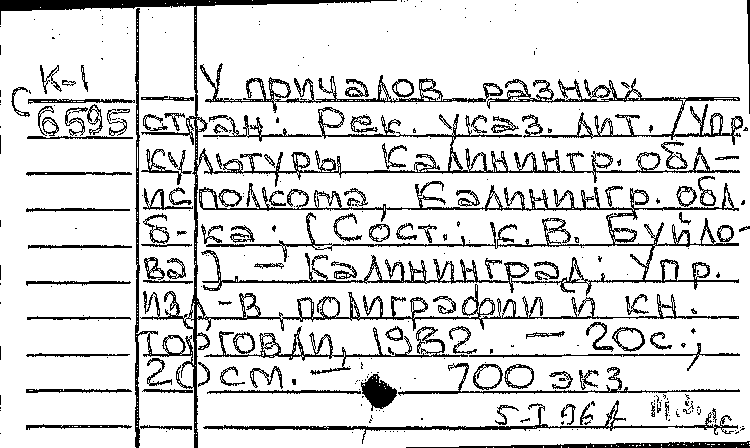 К-1
С 6595
У причалов разных
стран: Рек. указ. лит. / Упр.
культуры Калинингр. обл-
исполкома, Калинингр. обл.
б-ка; [Сост.: К. В. Буйло-
ва]. — Калининград: Упр.
изд-в, полиграфии и кн.
торговли, 1982. — 20 с.;
20 см. — 700 экз.